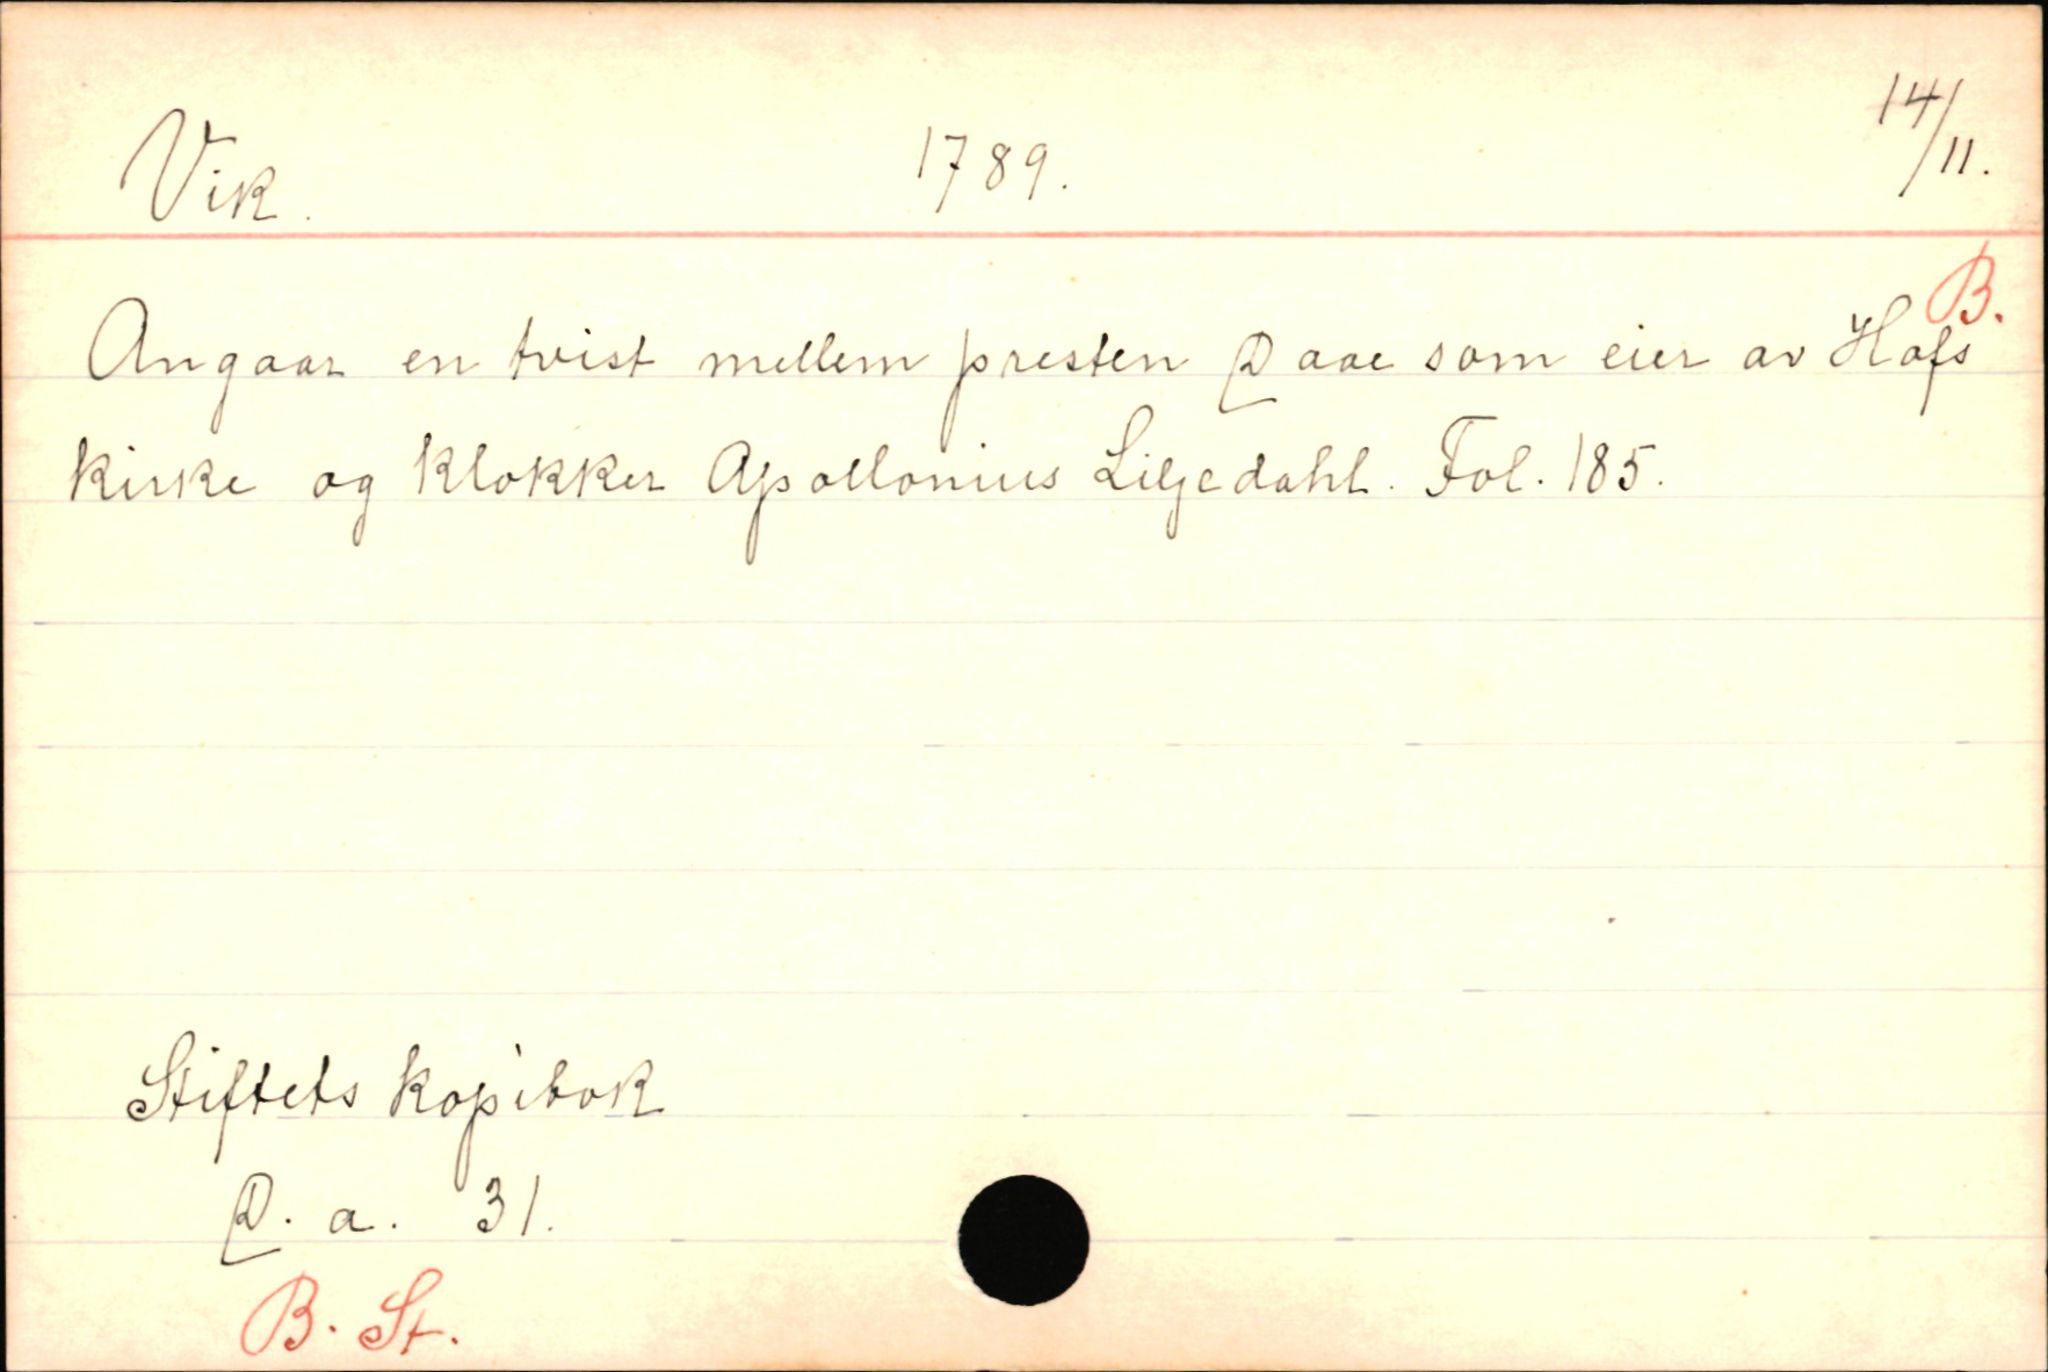 Vik. 1789. 14/11.
B.
Angaar en tvist mellem presten Daae som eier av Hofs
kirke og klokker Apollonius Liljedahl. Fol. 185.
Stiftets kopibok
D. a. 31.
B. St.